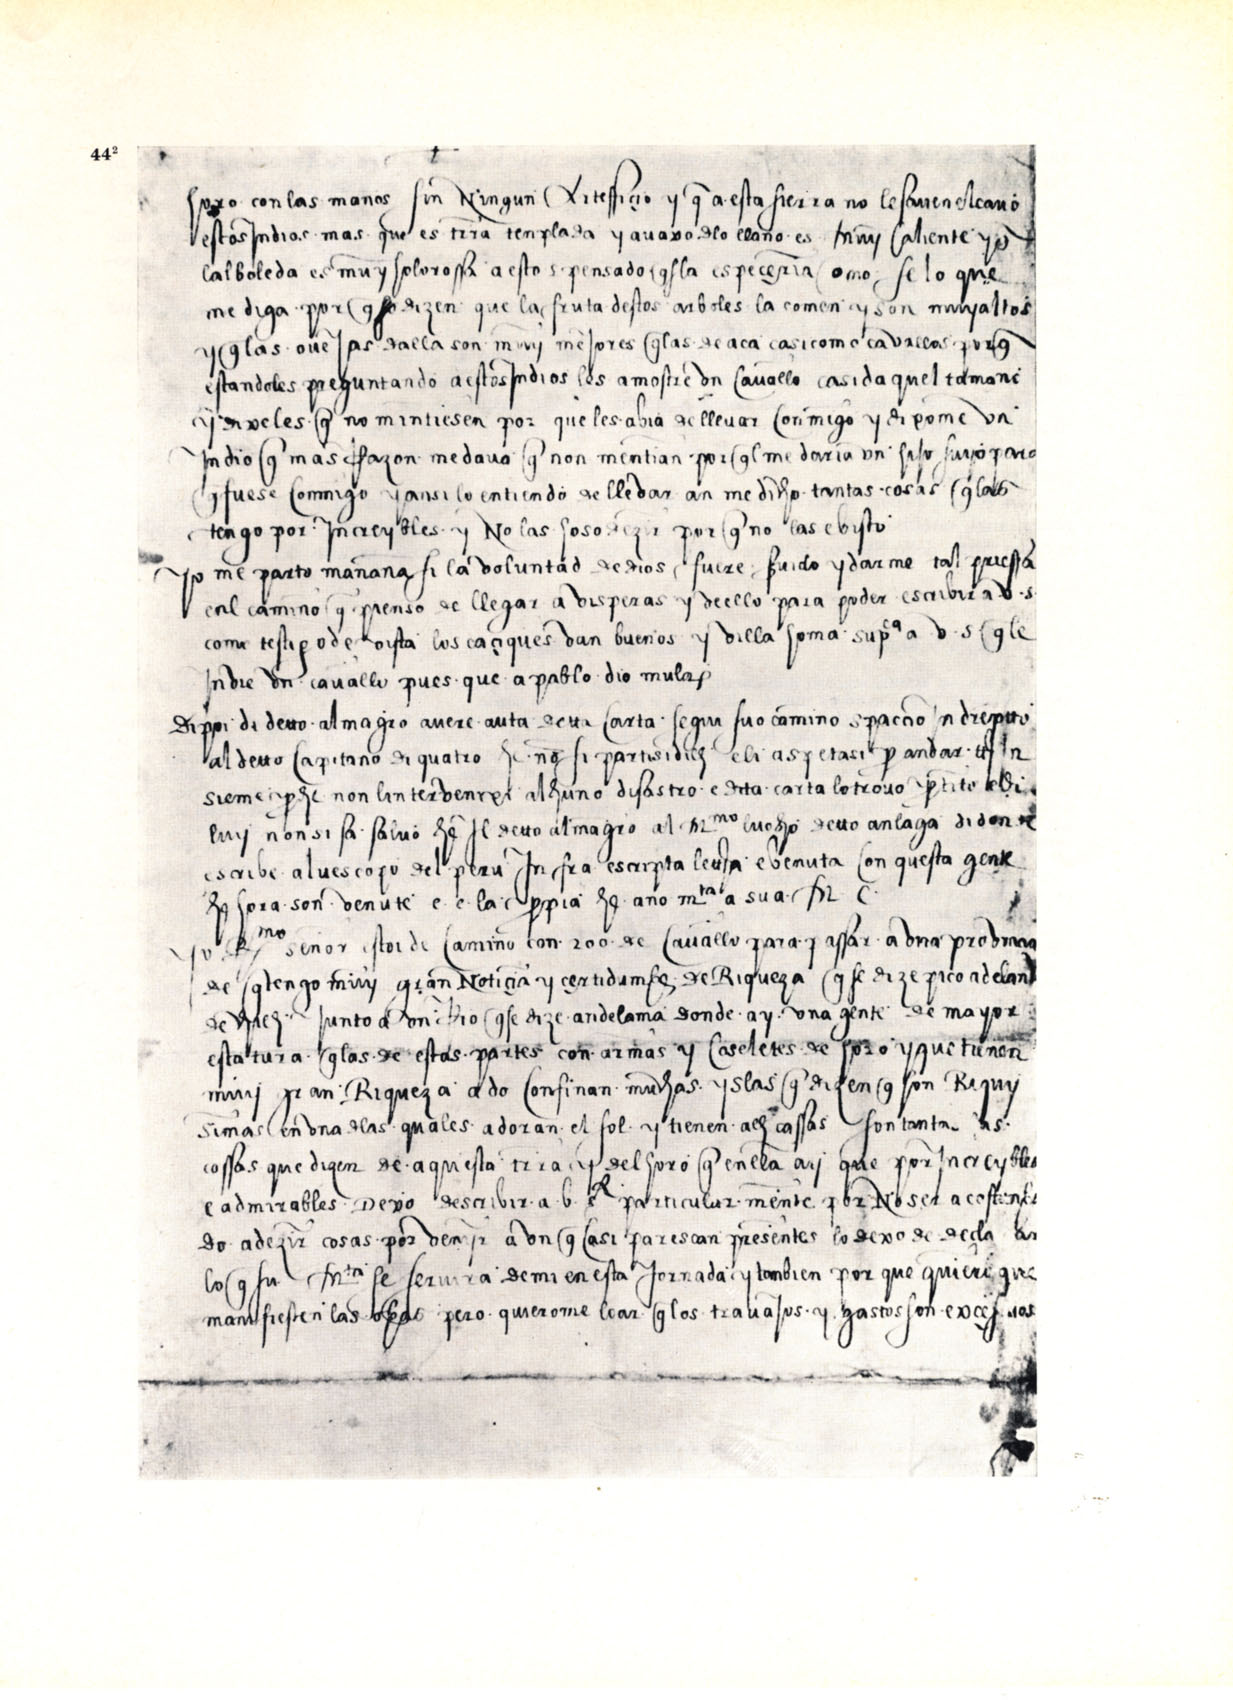 44²
horo con las manos sin Ningun Arteffiçio y q̃ a esta sierra no le saven el cavo
estos Indios mas que es trr̃a templada y avaxo de lo llano es muy Caliente y
lalboleda es muy holorossa a esto s pensado q̃ sla espeçeria Como se lo que
me diga por q̃ dizen que la fruta destos arboles la comen y son muy altos
y q̃ las ovejas dalla son muy mejores q̃ las de aca casi como cavallos porq̃
estandoles preguntando a estos Indios les amostre un Cavallo casi daquel tamano
y dixeles q̃ no mintiesen por que les abia de llevar Conmigo y dixome un
Indio q̃ mas Razon me dava q̃ non mentian por q̃l me daria un hijo suyo para
q̃ fuese Conmigo y ansi lo entiendo de llevar an me dicho tantas cosas q̃ las
tengo por Increybles y No las hoso dezir por q̃ no las e visto
Yo me parto mañana si la voluntad de dios fuere y darme tal priessa
enl camino q̃ pienso de llegar a visperas y de ello para poder escribir a v. s.
como testigo de vista los caçiques dan buenos y villa homa supᶜᵃ a v. s q̃ le
Indie un cavallo pues que a pablo dio mulas
Dippoi di detto almagro avere auta detta Carta segui suo camino spaccio In drepitto
al detto Capitano di quatro che nõ si partisi di li e li aspetasi p̱ andar tti In
sieme p̱che non linterveniri alchuno disastro e ditta carta lo trovo p̱tito e di
luy non si sa salvo chẽ Il detto almagro al mᵐᵒ luocho detto anlaga di donde
escribe al vescopo del peru Infra escripta letra e venuta Con questa gente
chẽ hora son venute e e la p̱pia chẽ ano mᵗᵃ a sua M C
Yo Rᵐᵒ señor estoi de Camino con 200 de Cavallo para passar a una provincia
de q̃ tengo muy gran Notiçia y çertidumbre de Riqueza q̃ se dize pico adelante
de Junto a un Rio q̃ se dize andelama donde ay una gente de mayor
estatura q̃ las de estas partes con armas y Caseletes de horo y que tienen
muy gran Riqueza a do Confinan muchas yslas q̃ dizen q̃ son Riquy
simas en una de las quales adoran el sol y tienen cassas son tantas las
cossas que dizen de aquesta trr̃a y del horo q̃ en ella ay que por Increybles
e admirables Dexo describir a v. s. particular mente por No ser acostumbra
do a dezir cosas por venir a un q̃ Casi parescan presentes lo dexo de
lo q̃ su Mᵗᵃ se servira de mi en esta Jornada y tambien por que quiere que
manifiesten las obras pero quierome loar q̃ los travajos y gastos son exçessivos